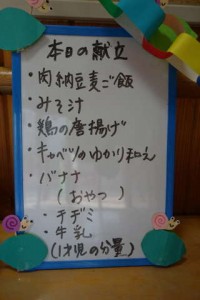 本日の献立
・肉納豆麦ご飯
・みそ汁
・鶏の唐揚げ
・キャベツのゆかり和え
・バナナ
(おやつ)
・チヂミ
・牛乳
(1才児の分量)